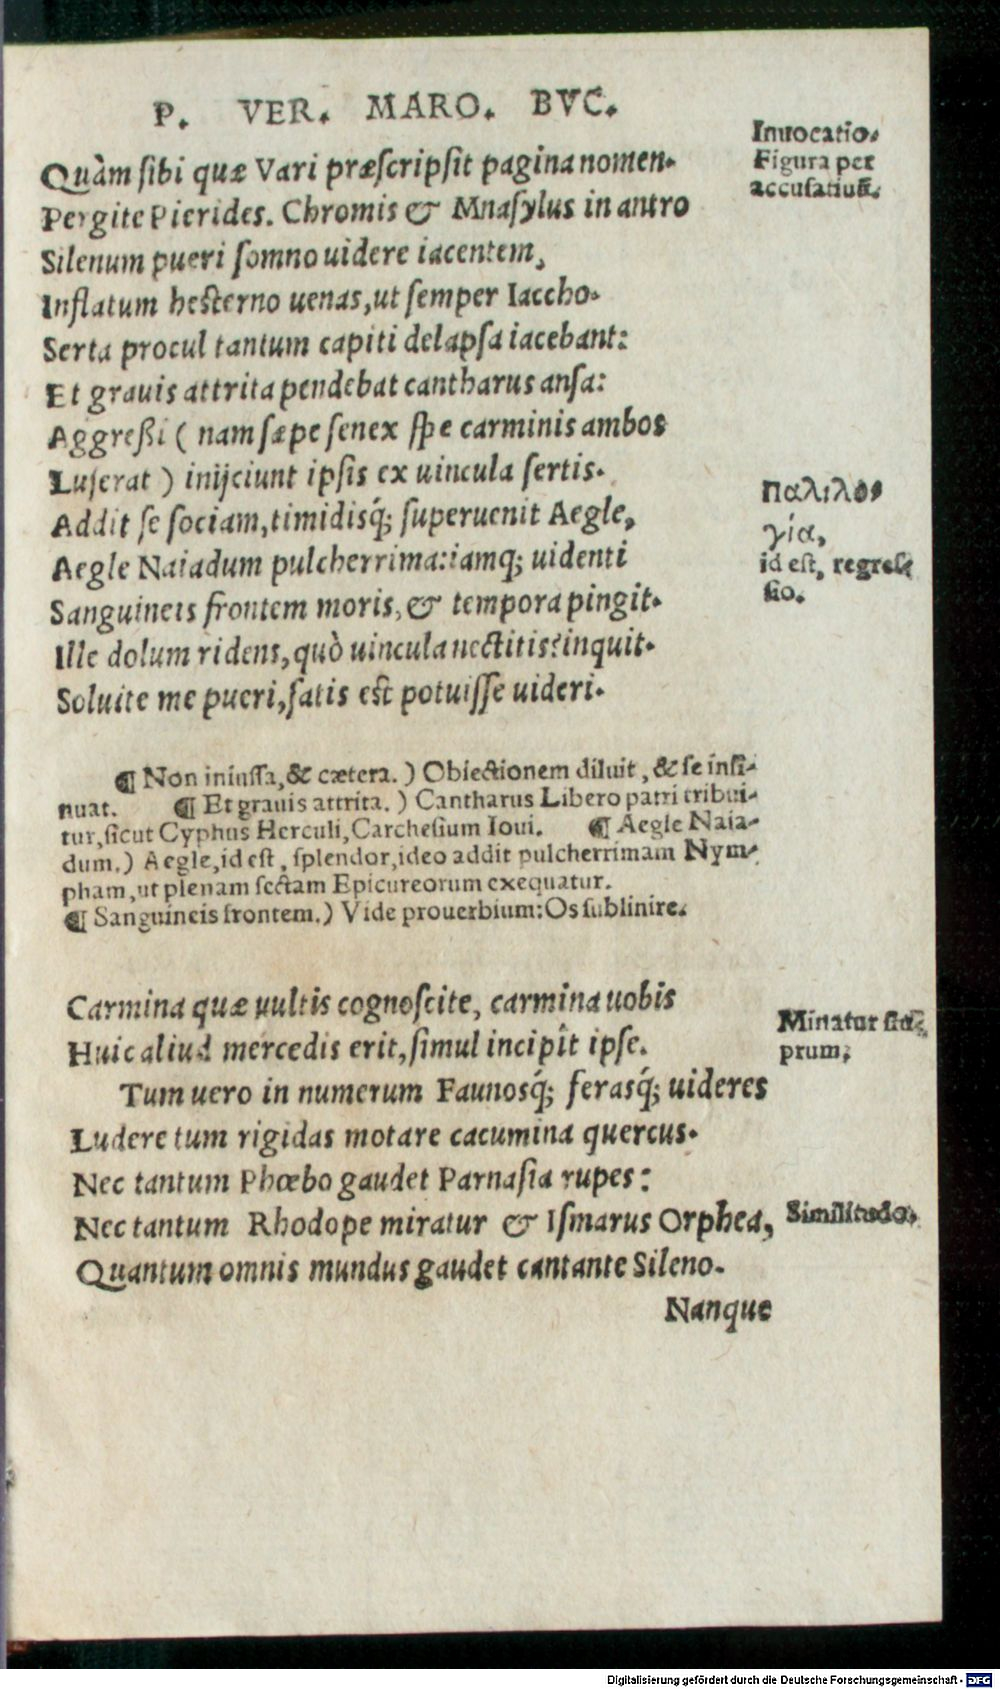 P. VER. MARO. BVC.
Quàm sibi quæ Vari præscripsit pagina nomen.
Pergite Pierides. Chromis & Mnasylus in antro
Silenum pueri somno uidere iacentem,
Inflatum hesterno uenas, ut semper Iaccho.
Serta procul tantum capiti delapsa iacebant:
Et grauis attrita pendebat cantharus ansa:
Aggreßi ( nam sæpe senex spe carminis ambos
Luserat ) inijciunt ipsis ex uincula sertis.
Addit se sociam, timidisq́; superuenit Aegle,
Aegle Naiadum pulcherrima: iamq; uidenti
Sanguineis frontem moris, & tempora pingit.
Ille dolum ridens, quò uincula nectitis? inquit.
Soluite me pueri, satis est potuisse uideri.
Inuocatio.
Figura per
accusatiuũ.
Παλιλο⸗
γία,
id est, regres⸗
sio.
¶ Non iniussa, & cætera. ) Obiectionem diluit, & se insi⸗
nuat. ¶ Et grauis attrita. ) Cantharus Libero patri tribui⸗
tur, sicut Cyphus Herculi, Carchesium Ioui. ¶ Aegle Naia⸗
dum. ) Aegle, id est, splendor, ideo addit pulcherrimam Nym⸗
pham, ut plenam sectam Epicureorum exequatur.
¶ Sanguineis frontem. ) Vide prouerbium: Os sublinire.
Carmina quæ uultis cognoscite, carmina uobis
Huic aliud mercedis erit, simul incipit ipse.
Tum uero in numerum Faunosq́; ferasq́; uideres
Ludere tum rigidas motare cacumina quercus.
Nec tantum Phœbo gaudet Parnasia rupes:
Nec tantum Rhodope miratur & Ismarus Orphea,
Quantum omnis mundus gaudet cantante Sileno.
Minatur
prum.
Similitudo.
Nanque
Digitalisierung gefördert durch die Deutsche Forschungsgemeinschaft - DFG